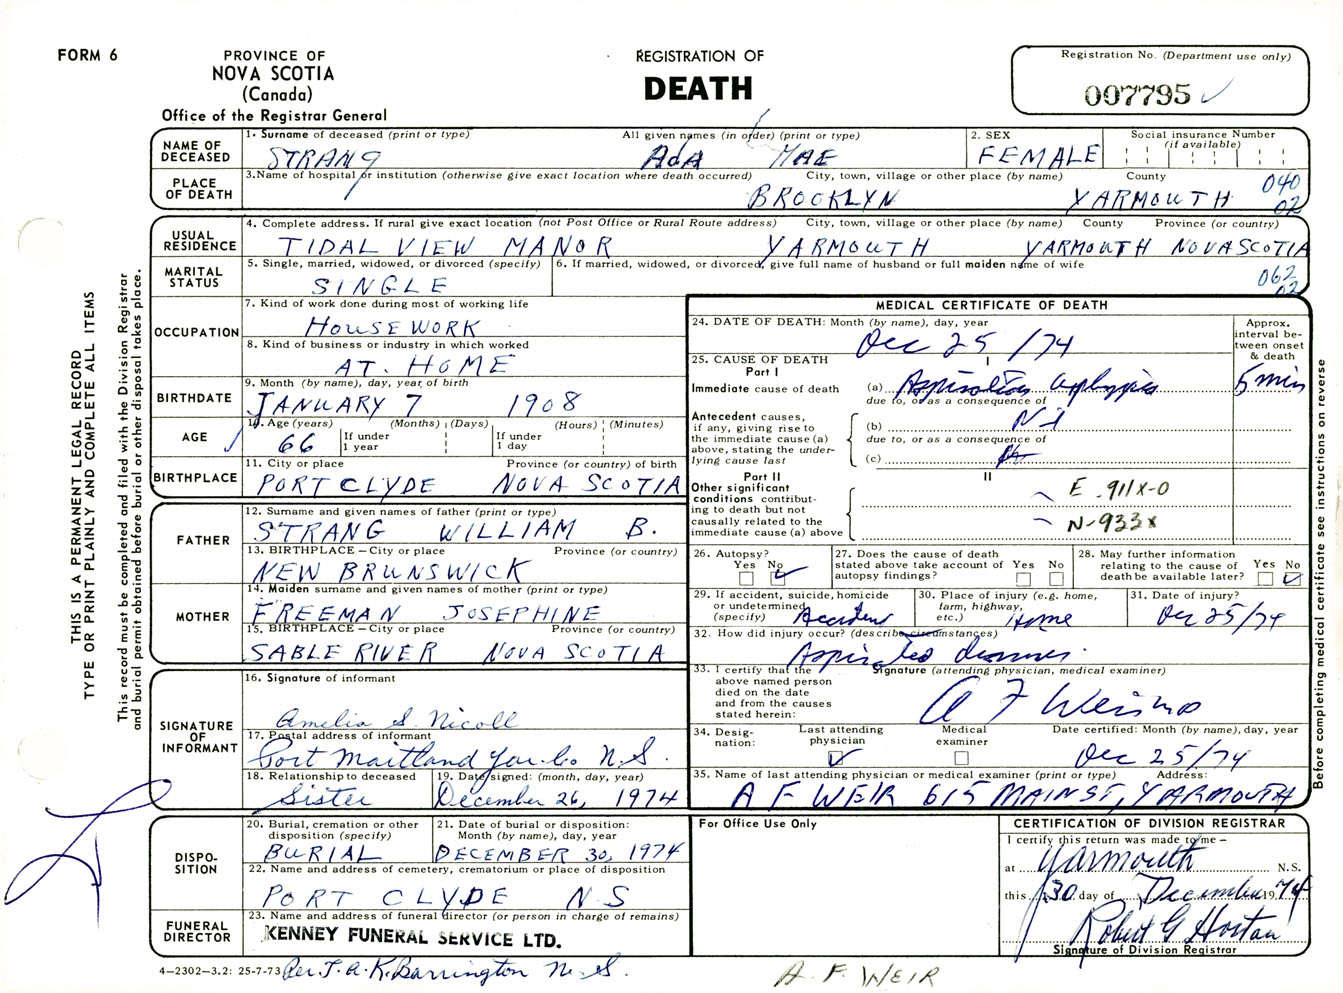 FORM 6
PROVINCE OF
NOVA SCOTIA
(Canada)
Office of the Registrar General
REGISTRATION OF
DEATH
Registration No. (Department use only)
007795
NAME OF DECEASED
1. Surname of deceased (print or type) All given names (in order) (print or type)
STRANG AdA MAE
2. SEX
FEMALE
Social insurance Number
(if available)
PLACE OF DEATH
3. Name of hospital or institution (otherwise give exact location where death occurred) City, town, village or other place (by name) County
BROOKLYN YARMOUTH
040
02
USUAL RESIDENCE
4. Complete address. If rural give exact location (not Post Office or Rural Route address) City, town, village or other place (by name) County Province (or country)
TIDAL VIEW MANOR YARMOUTH YARMOUTH NOVA SCOTIA
MARITAL STATUS
5. Single, married, widowed, or divorced (specify)
SINGLE
6. If married, widowed, or divorced, give full name of husband or full maiden name of wife
062
02
OCCUPATION
7. Kind of work done during most of working life
HOUSEWORK
8. Kind of business or industry in which worked
AT. HOME
BIRTHDATE
9. Month (by name), day, year of birth
JANUARY 7 1908
AGE
10. Age (years) (Months) (Days) (Hours) (Minutes)
66 If under 1 year If under 1 day
BIRTHPLACE
11. City or place Province (or country) of birth
PORT CLYDE NOVA SCOTIA
FATHER
12. Surname and given names of father (print or type)
STRANG WILLIAM B.
13. BIRTHPLACE – City or place Province (or country)
NEW BRUNSWICK
MOTHER
14. Maiden surname and given names of mother (print or type)
FREEMAN JOSEPHINE
15. BIRTHPLACE – City or place Province (or country)
SABLE RIVER NOVA SCOTIA
SIGNATURE OF INFORMANT
16. Signature of informant
Amelia S. Nicoll
17. Postal address of informant
Port Maitland Yar. Co N.S.
18. Relationship to deceased
Sister
19. Date signed: (month, day, year)
December 26, 1974
DISPO-
SITION
20. Burial, cremation or other disposition (specify)
BURIAL
21. Date of burial or disposition: Month (by name), day, year
DECEMBER 30, 1974
22. Name and address of cemetery, crematorium or place of disposition
PORT CLYDE N S
FUNERAL DIRECTOR
23. Name and address of funeral director (or person in charge of remains)
KENNEY FUNERAL SERVICE LTD.
4–2302–3.2: 25-7-73
Per. J. A. K. Barrington N. S.
MEDICAL CERTIFICATE OF DEATH
24. DATE OF DEATH: Month (by name), day, year
Dec 25 /74
Approx. interval be-
tween onset
& death
25. CAUSE OF DEATH
Part I
I
Immediate cause of death (a) Aspiration 5 min
due to, or as a consequence of
Antecedent causes,
if any, giving rise to
the immediate cause (a)
above, stating the under-
lying cause last
(b) Nil
due to, or as a consequence of
(c)
Part II
II
Other significant
conditions contribut-
ing to death but not
causally related to the
immediate cause (a) above
E 911X-0
N-933X
26. Autopsy?
Yes No
27. Does the cause of death stated above take account of autopsy findings?
Yes No
28. May further information relating to the cause of death be available later?
Yes No
29. If accident, suicide, homicide or undetermined (specify)
Accident
30. Place of injury (e.g. home, farm, highway, etc.)
Home
31. Date of injury?
Dec 25/74
32. How did injury occur? (describe circumstances)
Aspirated dinner.
33. I certify that the
above named person
died on the date
and from the causes
stated herein:
Signature (attending physician, medical examiner)
A F Weir
34. Desig-
nation:
Last attending physician
Medical examiner
Date certified: Month (by name), day, year
Dec 25/74
35. Name of last attending physician or medical examiner (print or type) Address:
A F WEIR 615 MAIN ST, YARMOUTH
For Office Use Only
CERTIFICATION OF DIVISION REGISTRAR
I certify this return was made to me –
at Yarmouth N.S.
this 30 day of December 1974
Robert G Horton
Signature of Division Registrar
A. F. WEIR
THIS IS A PERMANENT LEGAL RECORD
TYPE OR PRINT PLAINLY AND COMPLETE ALL ITEMS
This record must be completed and filed with the Division Registrar
and burial permit obtained before burial or other disposal takes place.
Before completing medical certificate see instructions on reverse